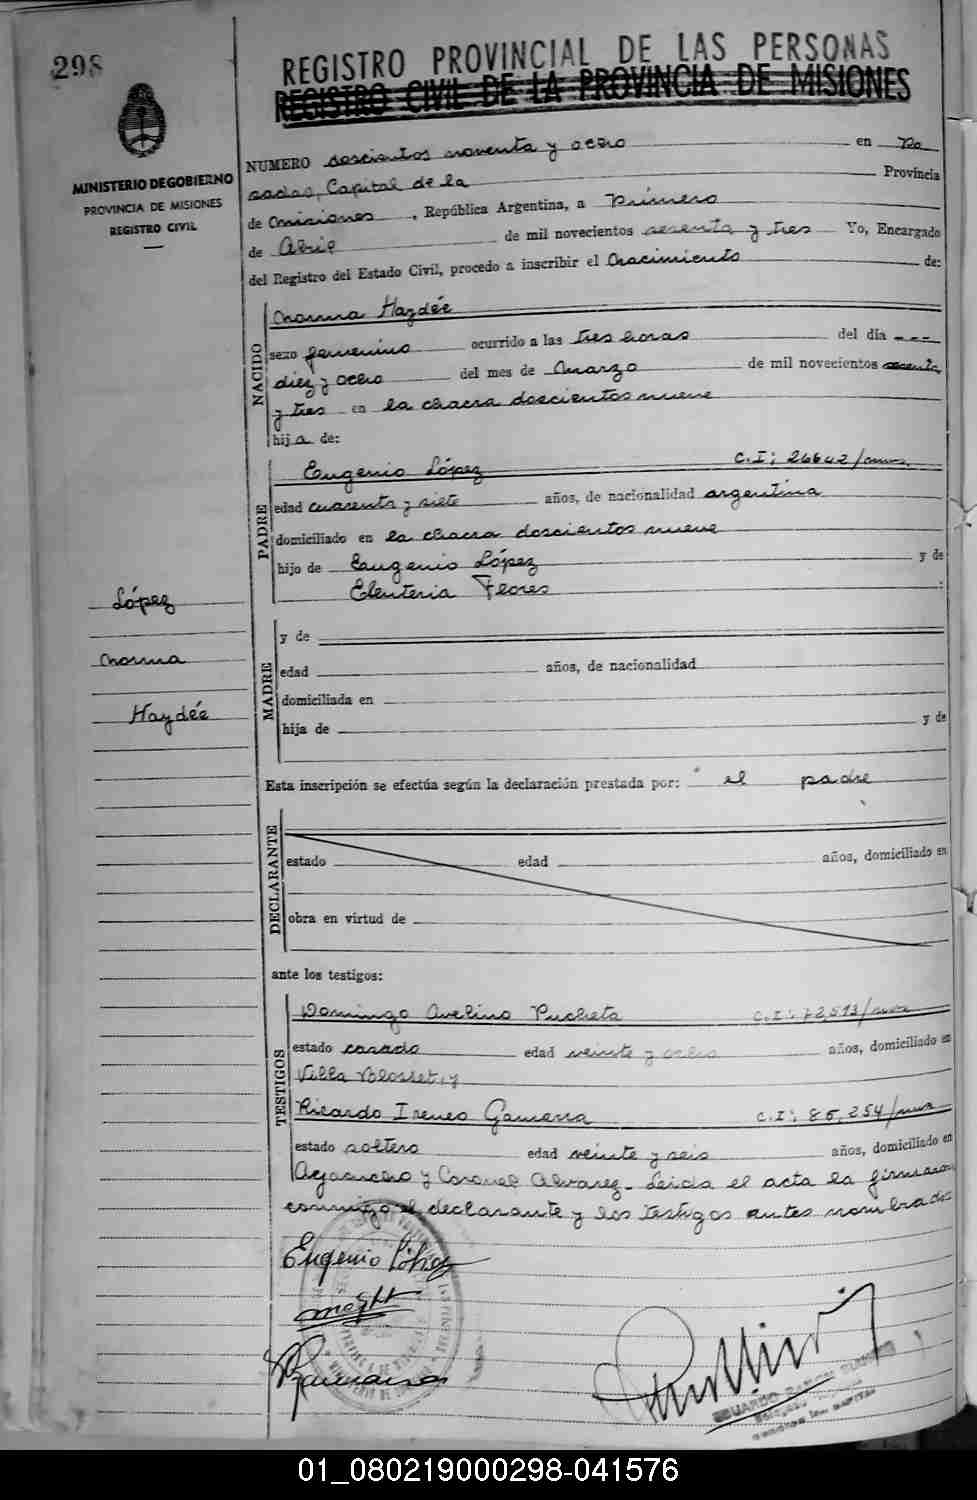 298
REGISTRO PROVINCIAL DE LAS PERSONAS
REGISTRO CIVIL DE LA PROVINCIA DE MISIONES
MINISTERIO DE GOBIERNO
PROVINCIA DE MISIONES
REGISTRO CIVIL
NUMERO doscientos noventa y ocho en Po
sadas, Capital de la Provincia
de Misiones, República Argentina, a primero
de Abril de mil novecientos sesenta y tres Yo, Encargado
del Registro del Estado Civil, procedo a inscribir el Nacimiento de:
NACIDO
Norma Haydée
sexo femenino ocurrido a las tres horas del día ---
diez y ocho del mes de Marzo de mil novecientos sesenta
y tres en la chacra doscientos nueve
hija de:
PADRE
Eugenio López C.I: 26642/mnes.
edad cuarenta y siete años, de nacionalidad argentina
domiciliado en la chacra doscientos nueve
hijo de Eugenio López y de
Eleuteria Flores :
López
Norma
Haydée
MADRE
y de
edad años, de nacionalidad
domiciliada en
hija de y de
Esta inscripción se efectúa según la declaración prestada por: el padre
DECLARANTE
estado edad años, domiciliado en
obra en virtud de
ante los testigos:
TESTIGOS
Domingo Avelino Pucheta C.I: 72,513/mnes
estado casado edad veinte y ocho años, domiciliado en
Villa Blosset, y
Ricardo Ireneo Gamarra C.I: 85,254/mnes
estado soltero edad veinte y seis años, domiciliado en
Ayacucho y Coronel Alvarez_ Leida el acta la firmaron
conmigo el declarante y los testigos antes nombrados
Eugenio López
01_080219000298-041576